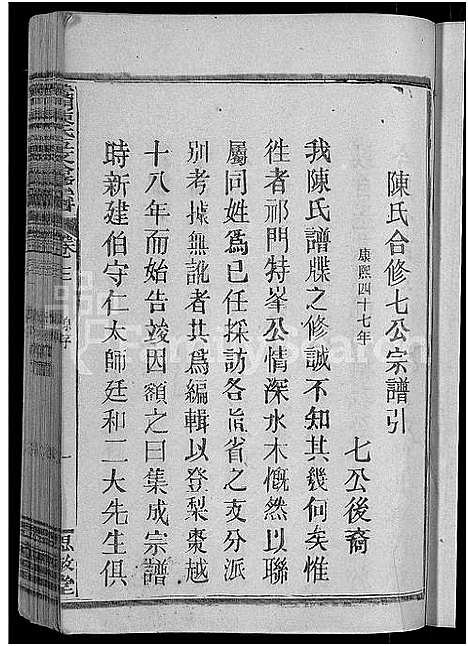 陳氏合修七公宗譜引
康熙四十七年
七公後裔
我陳氏譜牒之修誠不知其幾何矣惟
徃者祁門特峯公情深水木慨然以聯
屬同姓爲已任採訪各旨省之支分派
别考㨿無訛者共爲編輯以登梨棗越
十八年而始告竣因額之曰集成宗譜
時新建伯守仁太師廷和二大先生俱
卷之
一
思敬堂
FamilySearch